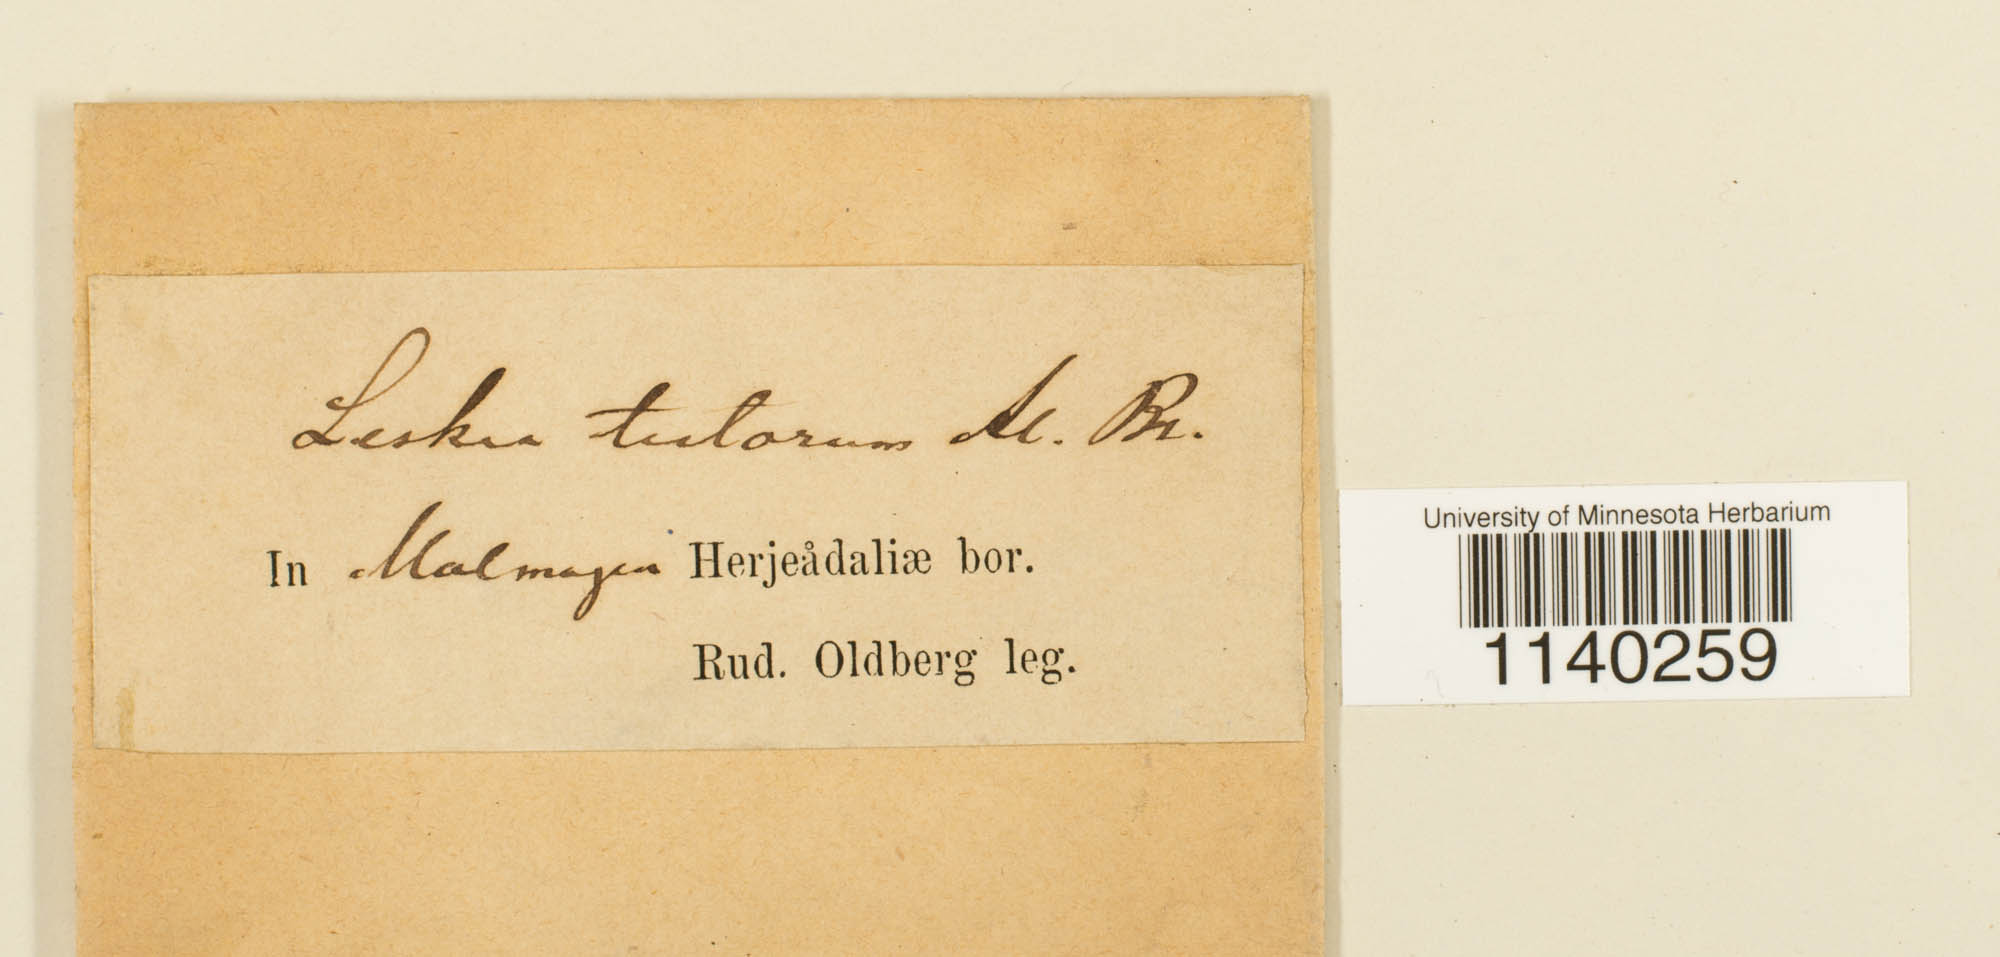 Leskea tectorum Al. Br.
In Malmagen Herjeådaliæ bor.
Rud. Oldberg leg.
University of Minnesota Herbarium
1140259